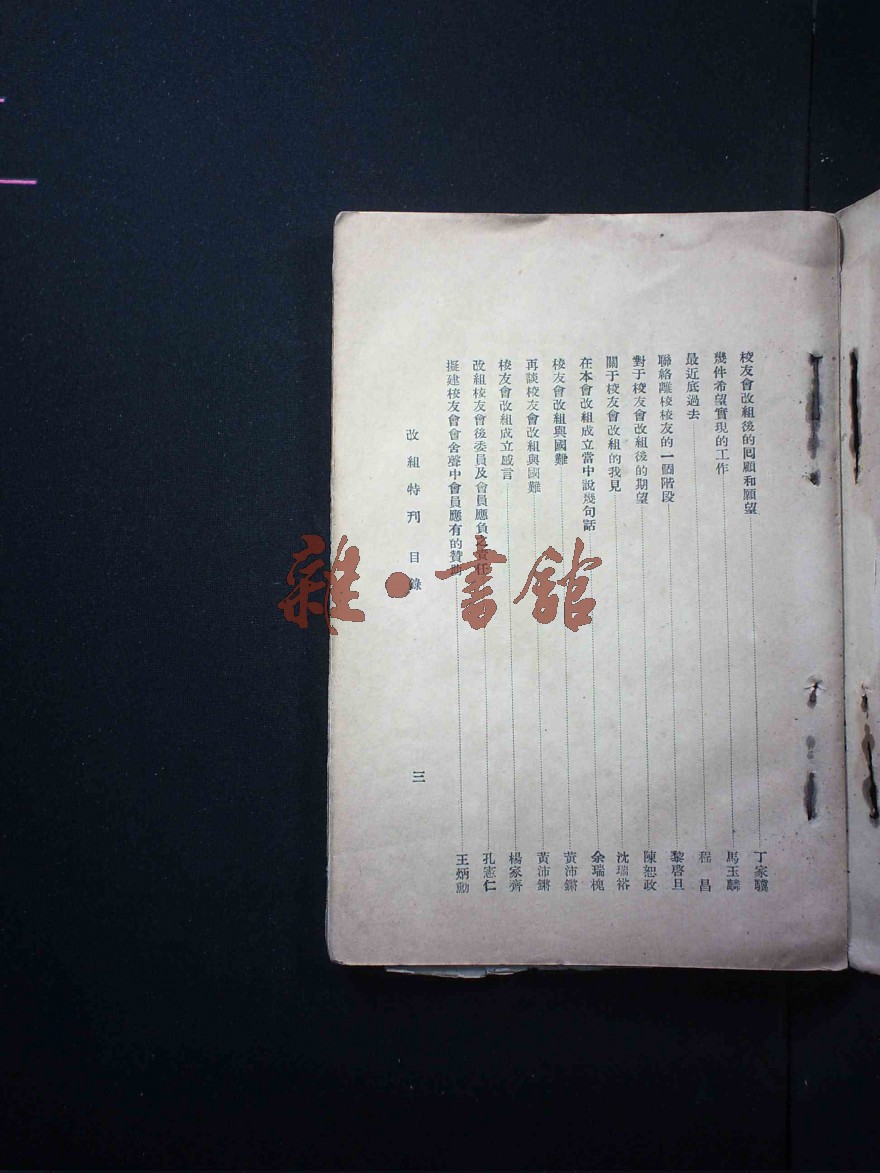 校友會改組後的囘顧和願望……丁家驥
幾件希望實現的工作……馬玉麟
最近底過去……程昌
聯絡離校校友的一個階段……黎啓旦
對于校友會改組後的期望……陳恕政
關于校友會改組的我見……沈瑞裕
在本會改組成立當中說幾句話……余瑞槐
校友會改組與國難……黃沛鏘
再談校友會改組與國難……黃沛鏘
校友會改組成立感言……楊家齊
改組校友會後委員及會員應負之責任……孔憲仁
擬建校友會會舍聲中會員應有的贊……王炳勳
改組特刊 目錄
三
雜·書館